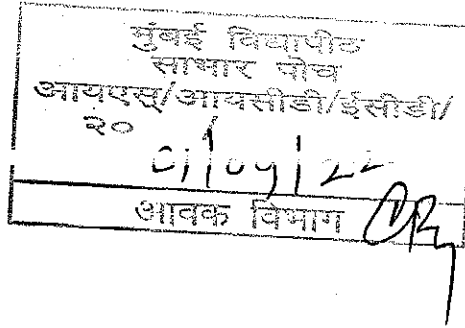 मुंबई विद्यापीठ
साभार पोच
आयएस्/आयसीडी/ईसीडी/
२०
आवक विभाग